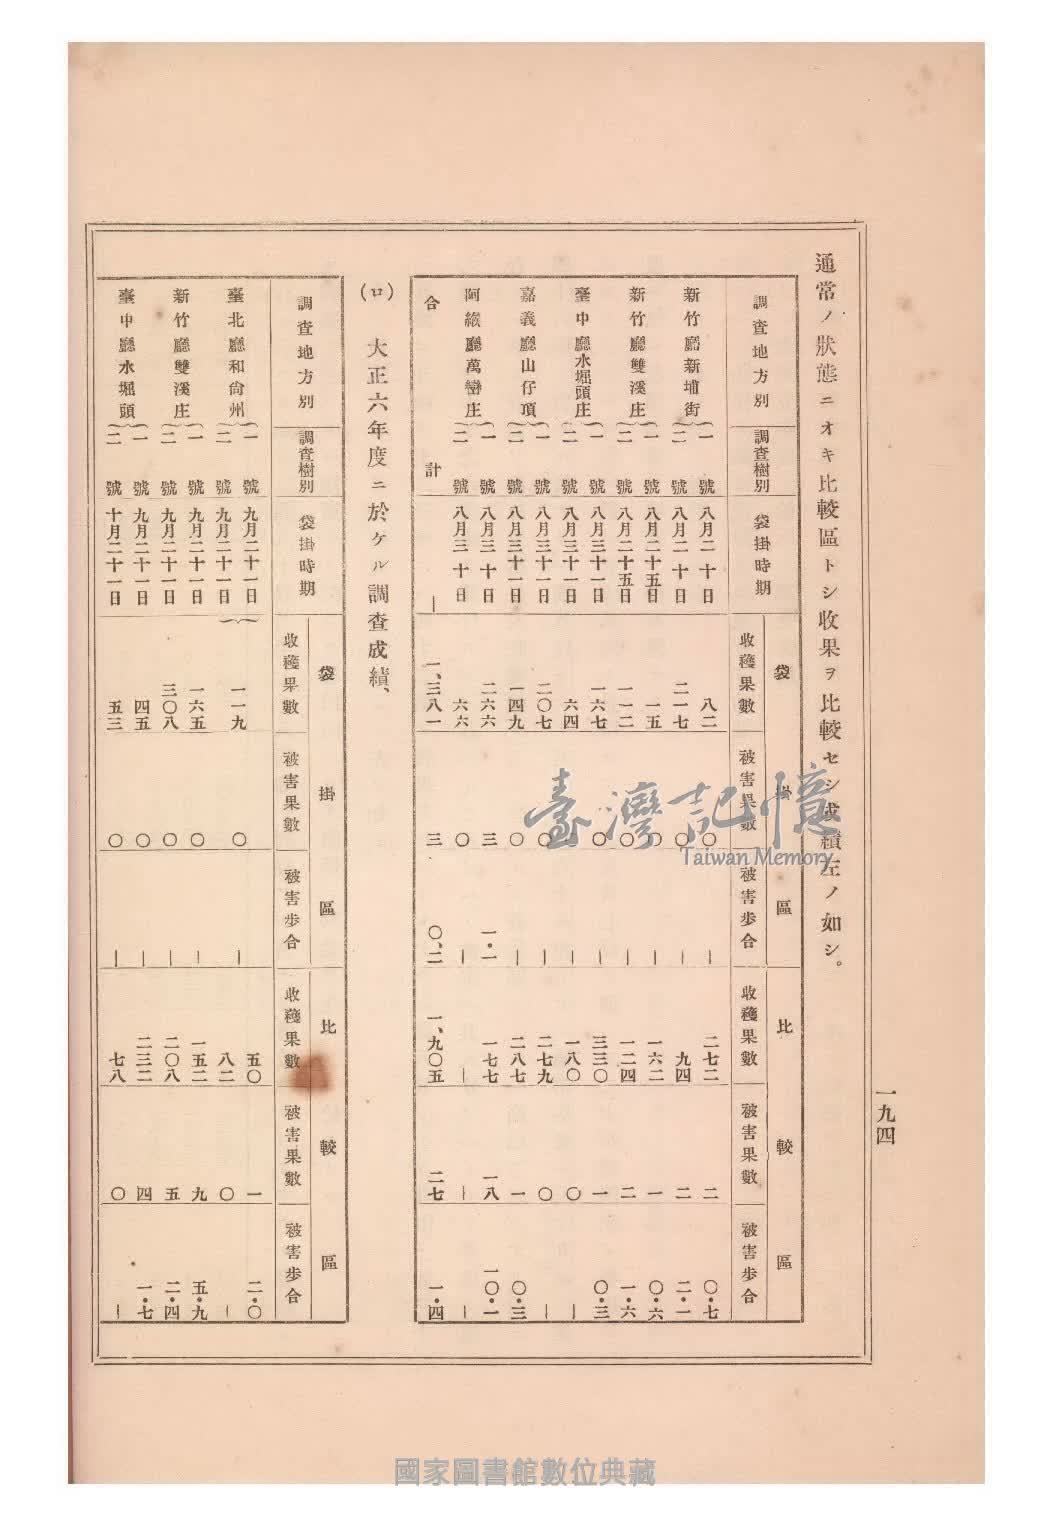 通常ノ狀態ニオキ比較區トシ收果ヲ比較セシ成績左ノ如シ。
調查地方別 調查樹別 袋掛時期 袋掛區 收穫果數 被害果數 被害步合 比較區 收穫果數 被害果數 被害步合
新竹廳新埔街 一號 八月二十日 八二 〇 ― 二七二 二 〇・七
二號 八月二十日 二一七 〇 ― 九四 二 二・一
新竹廳雙溪庄 一號 八月二十五日 一五 〇 ― 一六二 一 〇・六
二號 八月二十五日 一一二 〇 ― 一二四 二 一・六
臺中廳水堀頭庄 一號 八月三十一日 一六七 〇 ― 三三〇 一 〇・三
二號 八月三十一日 六四 ― 一八〇 〇 ―
嘉義廳山仔頂 一號 八月三十一日 二〇七 〇 ― 二七九 〇 ―
二號 八月三十一日 一四九 〇 ― 二八七 一 〇・三
阿緱廳萬巒庄 一號 八月三十日 二六六 三 一・一 一七七 一八 一〇・一
二號 八月三十日 六六 〇 ― ― ― ―
合計 ― 一、三八一 三 〇、二 一、九〇五 二七 一・四
(ロ) 大正六年度ニ於ケル調查成績、
調查地方別 調查樹別 袋掛時期 袋掛區 收穫果數 被害果數 被害步合 比較區 收穫果數 被害果數 被害步合
臺北廳和尙州 一號 九月二十一日 一一九 〇 ― 五〇 一 二・〇
二號 九月二十一日 八二 〇 ―
新竹廳雙溪庄 一號 九月二十一日 一六五 〇 ― 一五二 九 五・九
二號 九月二十一日 三〇八 〇 ― 二〇八 五 二・四
臺中廳水堀頭 一號 九月二十一日 四五 〇 ― 二三二 四 一・七
二號 十月二十一日 五三 〇 ― 七八 〇 ―
一九四
臺灣記憶
Taiwan Memory
國家圖書館數位典藏